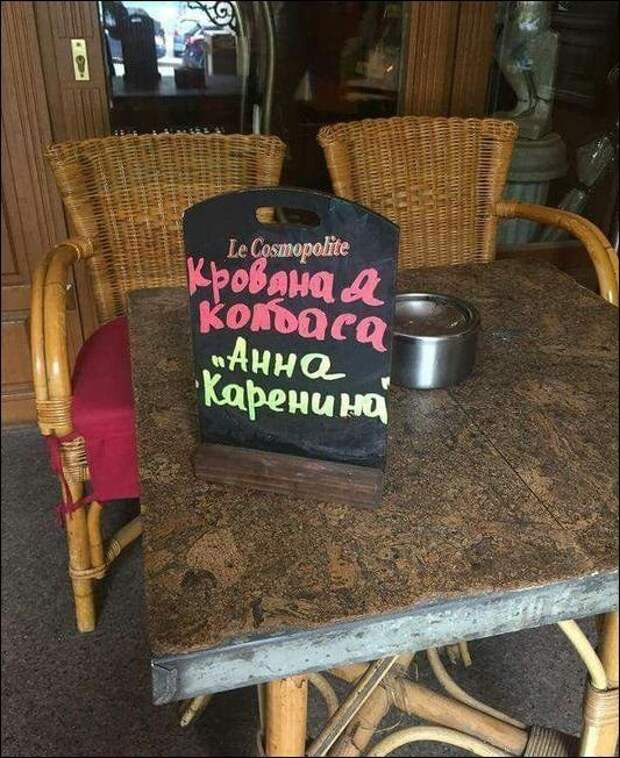 Le Cosmopolite
Кровяная
колбаса
„Анна
Каренина"